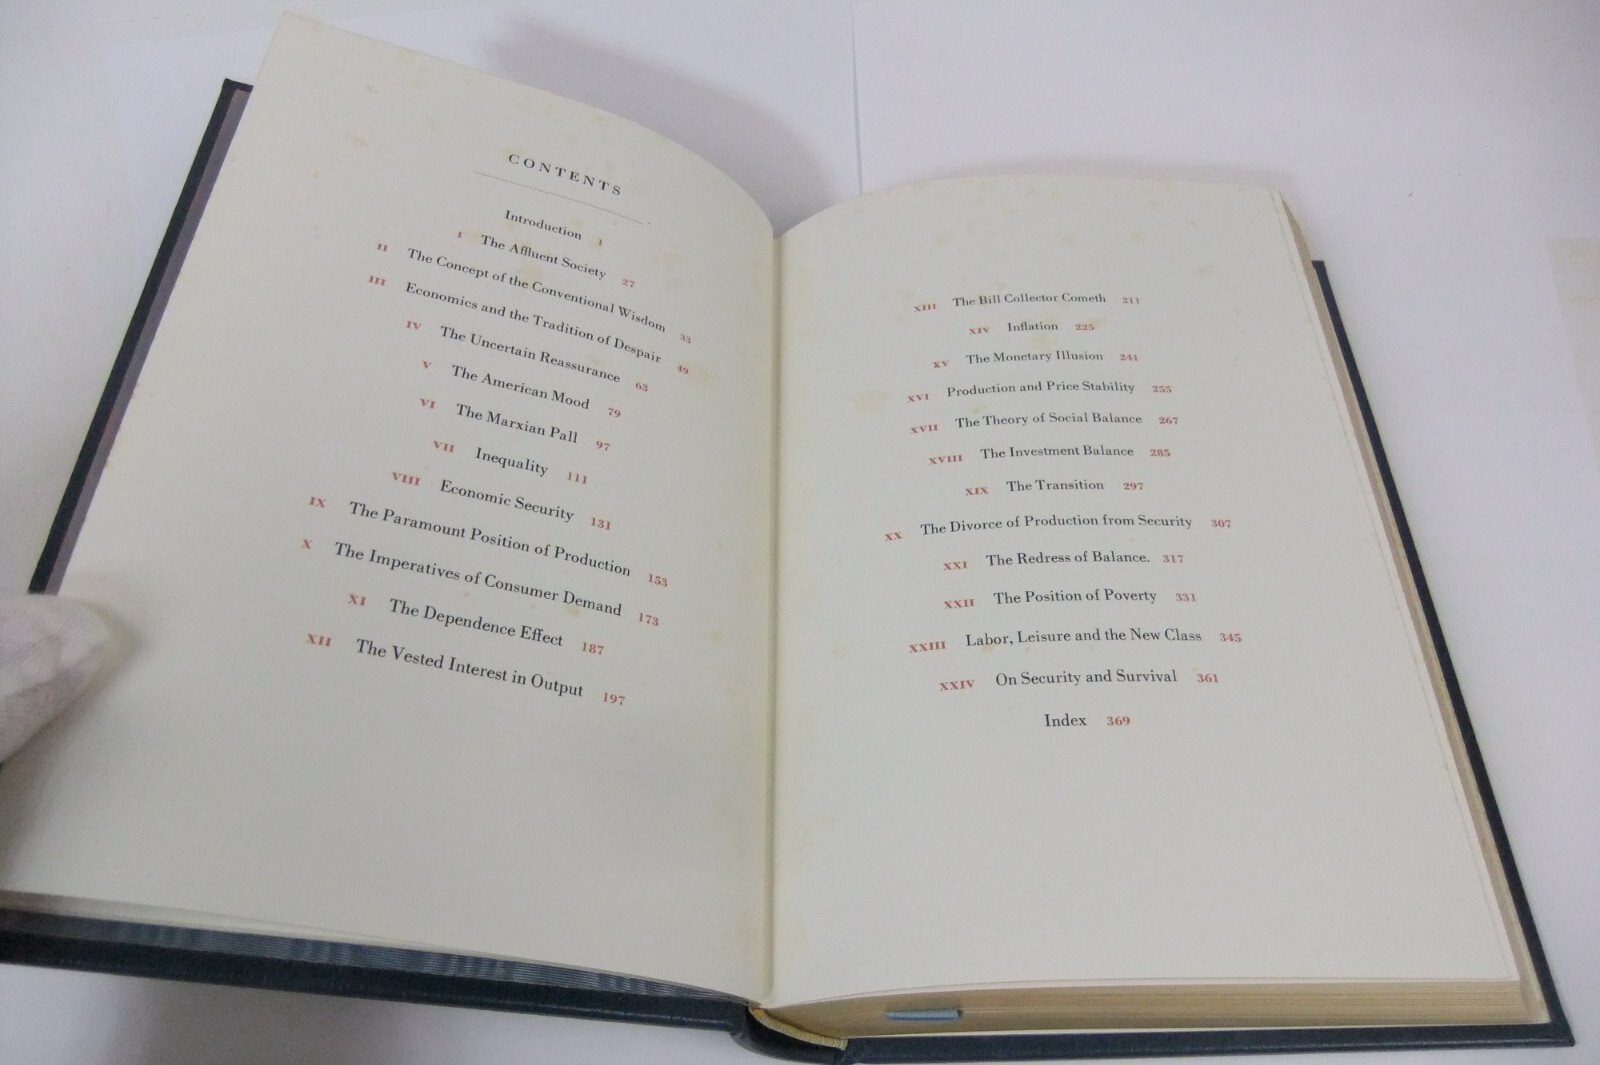 CONTENTS
Introduction 1
I The Affluent Society 27
II The Concept of the Conventional Wisdom 33
III Economics and the Tradition of Despair 49
IV The Uncertain Reassurance 63
V The American Mood 79
VI The Marxian Pall 97
VII Inequality 111
VIII Economic Security 131
IX The Paramount Position of Production 153
X The Imperatives of Consumer Demand 173
XI The Dependence Effect 187
XII The Vested Interest in Output 197
XIII The Bill Collector Cometh 211
XIV Inflation 225
XV The Monetary Illusion 241
XVI Production and Price Stability 255
XVII The Theory of Social Balance 267
XVIII The Investment Balance 285
XIX The Transition 297
XX The Divorce of Production from Security 307
XXI The Redress of Balance. 317
XXII The Position of Poverty 331
XXIII Labor, Leisure and the New Class 345
XXIV On Security and Survival 361
Index 369